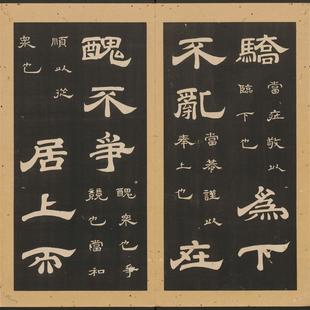 驕
當莊敬以
臨下也
爲下
不亂
當恭謹以
奉上也
在
醜不爭
醜衆也爭
競也當和
順以從
衆也
居上而